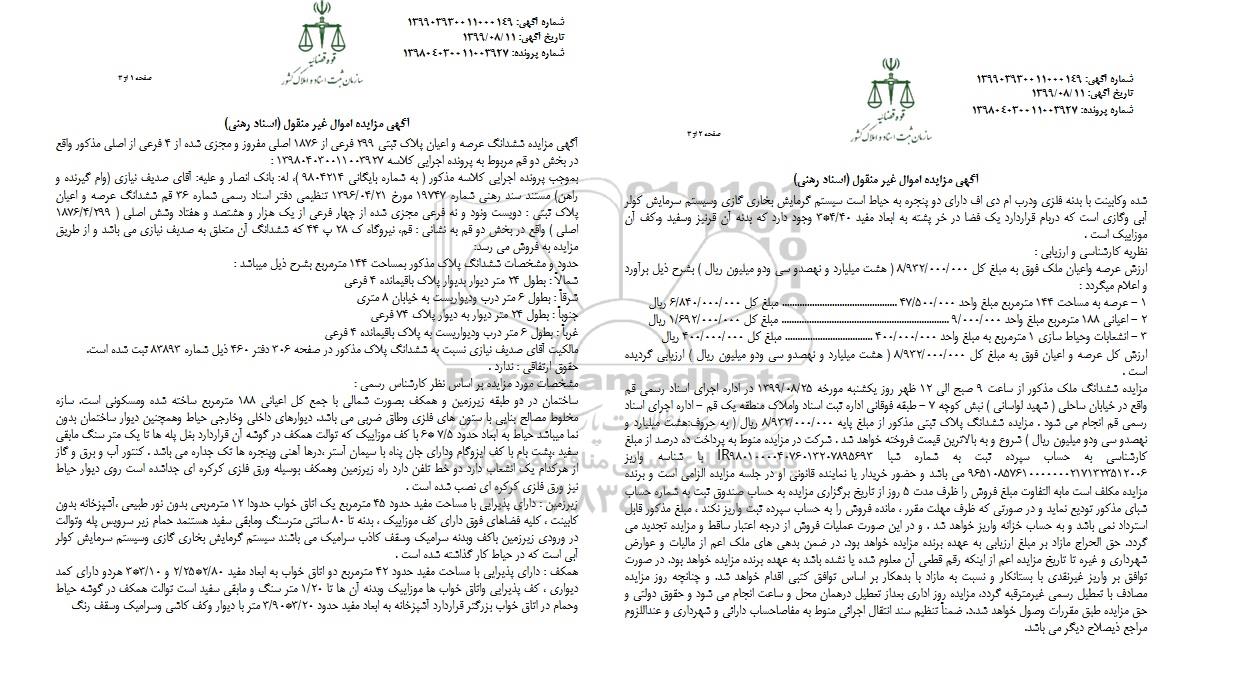 شماره آگهی: ۱۳۹۹۰۳۹۳۰۰۱۱۰۰۰۱۴۹
تاریخ آگهی: ۱۳۹۹/۰۸/۱۱
شماره پرونده: ۱۳۹۸۰۴۰۳۰۰۱۱۰۰۳۹۲۷
قوه قضائیه
سازمان ثبت اسناد و املاک کشور
صفحه ۱ از ۳
آگهی مزایده اموال غیر منقول (اسناد رهنی)
آگهی مزایده ششدانگ عرصه و اعیان پلاک ثبتی ۲۹۹ فرعی از ۱۸۷۶ اصلی مفروز و مجزی شده از ۴ فرعی از اصلی مذکور واقع
در بخش دو قم مربوط به پرونده اجرایی کلاسه ۱۳۹۸۰۴۰۳۰۰۱۱۰۰۳۹۲۷ :
بموجب پرونده اجرایی کلاسه مذکور ( به شماره بایگانی ۹۸۰۴۲۱۴ )، له: بانک انصار و علیه: آقای صدیف نیازی (وام گیرنده و
راهن) مستند سند رهنی شماره ۱۹۷۴۷ مورخ ۱۳۹۶/۰۴/۲۱ تنظیمی دفتر اسناد رسمی شماره ۳۶ قم ششدانگ عرصه و اعیان
پلاک ثبتی : دویست ونود و نه فرعی مجزی شده از چهار فرعی از یک هزار و هشتصد و هفتاد وشش اصلی ( ۱۸۷۶/۴/۲۹۹
اصلی ) واقع در بخش دو قم به نشانی : قم، نیروگاه ک ۲۸ پ ۴۴ که ششدانگ آن متعلق به صدیف نیازی می باشد و از طریق
مزایده به فروش می رسد:
حدود و مشخصات ششدانگ پلاک مذکور بمساحت ۱۴۴ مترمربع بشرح ذیل میباشد :
شمالاً : بطول ۲۴ متر دیوار بدیوار پلاک باقیمانده ۴ فرعی
شرقاً : بطول ۶ متر درب ودیواریست به خیابان ۸ متری
جنوباً : بطول ۲۴ متر دیوار به دیوار پلاک ۷۴ فرعی
غرباً : بطول ۶ متر درب ودیواریست به پلاک باقیمانده ۴ فرعی
مالکیت آقای صدیف نیازی نسبت به ششدانگ پلاک مذکور در صفحه ۳۰۶ دفتر ۴۶۰ ذیل شماره ۸۳۸۹۳ ثبت شده است.
حقوق ارتفاقی : ندارد .
مشخصات مورد مزایده بر اساس نظر کارشناس رسمی :
ساختمان در دو طبقه زیرزمین و همکف بصورت شمالی با جمع کل اعیانی ۱۸۸ مترمربع ساخته شده ومسکونی است. سازه
مخلوط مصالح بنایی با ستون های فلزی وطاق ضربی می باشد. دیوارهای داخلی وخارجی حیاط وهمچنین دیوار ساختمان بدون
نما میباشد حیاط به ابعاد حدود ۷/۵ *۶ با کف موزاییک که توالت همکف در گوشه آن قراردارد بغل پله ها تا یک متر سنگ مابقی
سفید ،پشت بام با کف ایزوگام ودارای جان پناه با سیمان آستر .درها آهنی وپنجره ها تک جداره می باشد . کنتور آب و برق و گاز
از هرکدام یک انشعاب دارد دو خط تلفن دارد راه زیرزمین وهمکف بوسیله ورق فلزی کرکره ای جداشده است روی دیوار حیاط
نیز ورق فلزی کرکره ای نصب شده است .
زیرزمین : دارای پذیرایی با مساحت مفید حدود ۴۵ مترمربع یک اتاق خواب حدودا ۱۲ مترمربعی بدون نور طبیعی ،آشپزخانه بدون
کابینت ، کلیه فضاهای فوق دارای کف موزاییک ، بدنه تا ۸۰ سانتی مترسنگ ومابقی سفید هستند حمام زیر سرویس پله وتوالت
در ورودی زیرزمین باکف وبدنه سرامیک وسقف کاذب سرامیک می باشند سیستم گرمایش بخاری گازی وسیستم سرمایش کولر
آبی است که در حیاط کار گذاشته شده است .
همکف : دارای پذیرایی با مساحت مفید حدود ۴۲ مترمربع دو اتاق خواب به ابعاد مفید ۲/۸۰*۲/۲۵ و ۳/۱۰*۳ هردو دارای کمد
دیواری ، کف پذیرایی واتاق خواب ها موزاییک وبدنه آن ها تا ۱/۲۰ متر سنگ و مابقی سفید است توالت همکف در گوشه حیاط
وحمام در اتاق خواب بزرگتر قراردارد آشپزخانه به ابعاد مفید حدود ۳/۲۰*۲/۹۰ متر با دیوار وکف کاشی وسرامیک وسقف رنگ
شماره آگهی: ۱۳۹۹۰۳۹۳۰۰۱۱۰۰۰۱۴۹
تاریخ آگهی: ۱۳۹۹/۰۸/۱۱
شماره پرونده: ۱۳۹۸۰۴۰۳۰۰۱۱۰۰۳۹۲۷
قوه قضائیه
سازمان ثبت اسناد و املاک کشور
صفحه ۲ از ۳
آگهی مزایده اموال غیر منقول (اسناد رهنی)
شده وکابینت با بدنه فلزی ودرب ام دی اف دارای دو پنجره به حیاط است سیستم گرمایش بخاری گازی وسیستم سرمایش کولر
آبی وگازی است که دربام قراردارد یک فضا در خر پشته به ابعاد مفید ۴/۴۰*۳ وجود دارد که بدنه آن قرنیز وسفید وکف آن
موزاییک است .
نظریه کارشناسی و ارزیابی :
ارزش عرصه واعیان ملک فوق به مبلغ کل ۸/۹۳۲/۰۰۰/۰۰۰ ( هشت میلیارد و نهصدو سی ودو میلیون ریال ) بشرح ذیل برآورد
و اعلام میگردد :
۱ – عرصه به مساحت ۱۴۴ مترمربع مبلغ واحد ۴۷/۵۰۰/۰۰۰ ........................ مبلغ کل ۶/۸۴۰/۰۰۰/۰۰۰ ریال
۲ – اعیانی ۱۸۸ مترمربع مبلغ واحد ۹/۰۰۰/۰۰۰ ........................ مبلغ کل ۱/۶۹۲/۰۰۰/۰۰۰ ریال
۳ – انشعابات وحیاط سازی ۱ مترمربع به مبلغ واحد ۴۰۰/۰۰۰/۰۰۰ ........................ مبلغ کل ۴۰۰/۰۰۰/۰۰۰ ریال
ارزش کل عرصه و اعیان فوق به مبلغ کل ۸/۹۳۲/۰۰۰/۰۰۰ ( هشت میلیارد و نهصدو سی ودو میلیون ریال ) ارزیابی گردیده
است .
مزایده ششدانگ ملک مذکور از ساعت ۹ صبح الی ۱۲ ظهر روز یکشنبه مورخه ۱۳۹۹/۰۸/۲۵ در اداره اجرای اسناد رسمی قم
واقع در خیابان ساحلی ( شهید لواسانی ) نبش کوچه ۷ – طبقه فوقانی اداره ثبت اسناد واملاک منطقه یک قم – اداره اجرای اسناد
رسمی قم انجام می شود . مزایده ششدانگ پلاک ثبتی مذکور از مبلغ پایه ۸/۹۳۲/۰۰۰/۰۰۰ ریال ( به حروف:هشت میلیارد و
نهصدو سی ودو میلیون ریال ) شروع و به بالاترین قیمت فروخته خواهد شد . شرکت در مزایده منوط به پرداخت ده درصد از مبلغ
کارشناسی به حساب سپرده ثبت به شماره شبا با شناسه واریز
می باشد و حضور خریدار یا نماینده قانونی او در جلسه مزایده الزامی است و برنده
مزایده مکلف است مابه التفاوت مبلغ فروش را ظرف مدت ۵ روز از تاریخ برگزاری مزایده به حساب صندوق ثبت به شماره حساب
شبای مذکور تودیع نماید و در صورتی که ظرف مهلت مقرر ، مانده فروش را به حساب سپرده ثبت واریز نکند . مبلغ مذکور قابل
استرداد نمی باشد و به حساب خزانه واریز خواهد شد . و در این صورت عملیات فروش از درجه اعتبار ساقط و مزایده تجدید می
گردد. حق الحراج مازاد بر مبلغ ارزیابی به عهده برنده مزایده خواهد بود. در ضمن بدهی های ملک اعم از مالیات و عوارض
شهرداری و غیره تا تاریخ مزایده اعم از اینکه رقم قطعی آن معلوم شده یا نشده باشد به عهده برنده مزایده خواهد بود. در صورت
توافق بر واریز غیرنقدی با بستانکار و نسبت به مازاد با بدهکار بر اساس توافق کتبی اقدام خواهد شد. و چنانچه روز مزایده
مصادف با تعطیل رسمی غیرمترقبه گردد، مزایده روز اداری بعداز تعطیل درهمان محل و ساعت انجام می شود و حقوق دولتی و
حق مزایده طبق مقررات وصول خواهد شد.د. ضمناً تنظیم سند انتقال اجرائی منوط به مفاصاحساب دارائی و شهرداری و عنداللزوم
مراجع ذیصلاح دیگر می باشد.
ParsNamadData